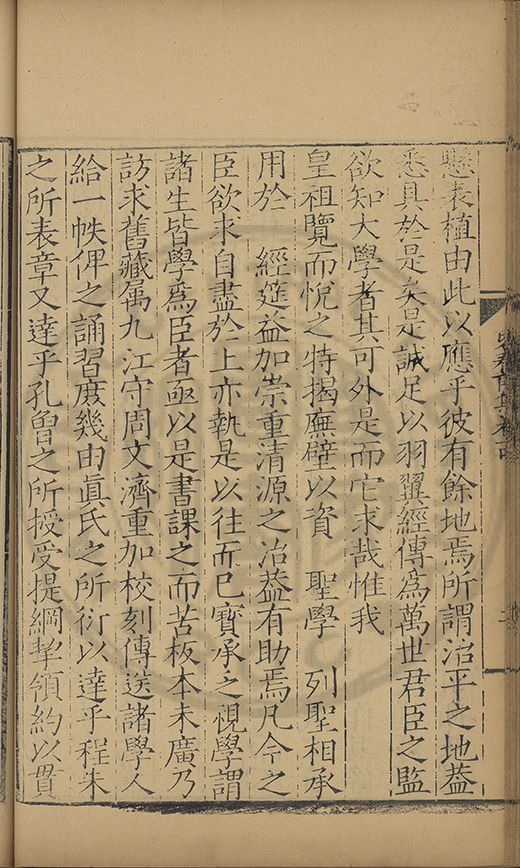 懸表植由此以應乎彼有餘地焉所謂治平之地葢
悉具於是矣是誠足以羽翼經傳爲萬世君臣之監
欲知大學者其可外是而它求哉惟我
皇祖覽而悅之特揭廡壁以資　聖學　列聖相承
用於　經筵益加崇重清源之治葢有助焉凡今之
臣欲求自盡於上亦執是以往而已寳承之視學謂
諸生皆學爲臣者亟以是書課之而苦板本未廣乃
訪求舊藏属九江守周文濟重加校刻傳送諸學人
給一帙俾之誦習庻幾由眞氏之所衍以達乎程朱
之所表章又達乎孔曾之所授受提綱挈領約以貫